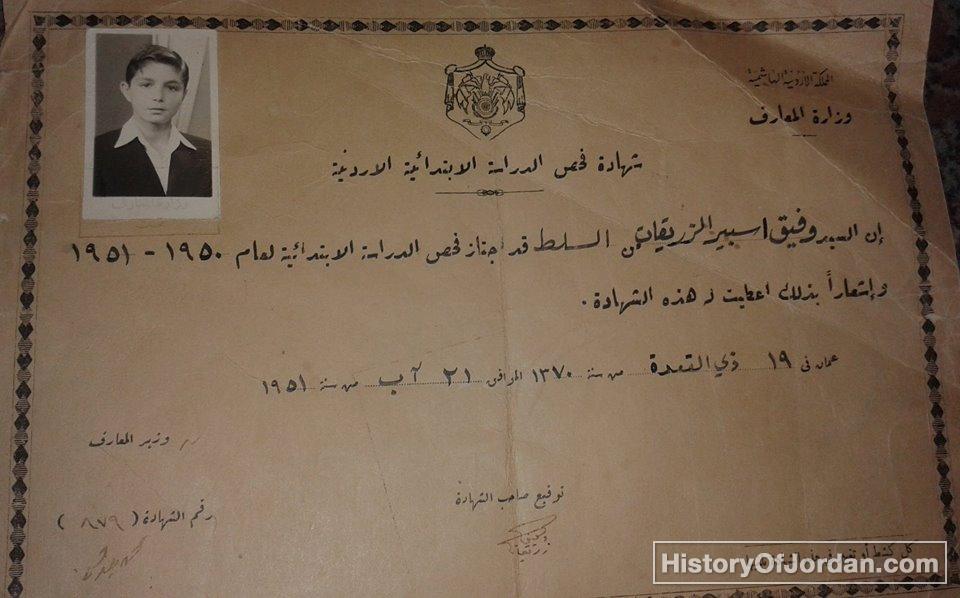 المملكة الاردنية الهاشمية
وزارة المعارف
شهادة فحص الدراسة الابتدائية الاردنية
إن السيد وفيق اسبير الزريقات من السلط قد اجتاز فحص الدراسة الابتدائية لعام ١٩٥٠ - ١٩٥١
وإشعاراً بذلك اعطيت له هذه الشهادة.
عمان في ١٩ ذي القعدة من سنة ١٣٧٠ الموافق ٢١ آب من سنة ١٩٥١
وزير المعارف
توقيع صاحب الشهادة
رقم الشهادة ( ٨٧٩ )
كل كشط أو
HistoryOfJordan.com